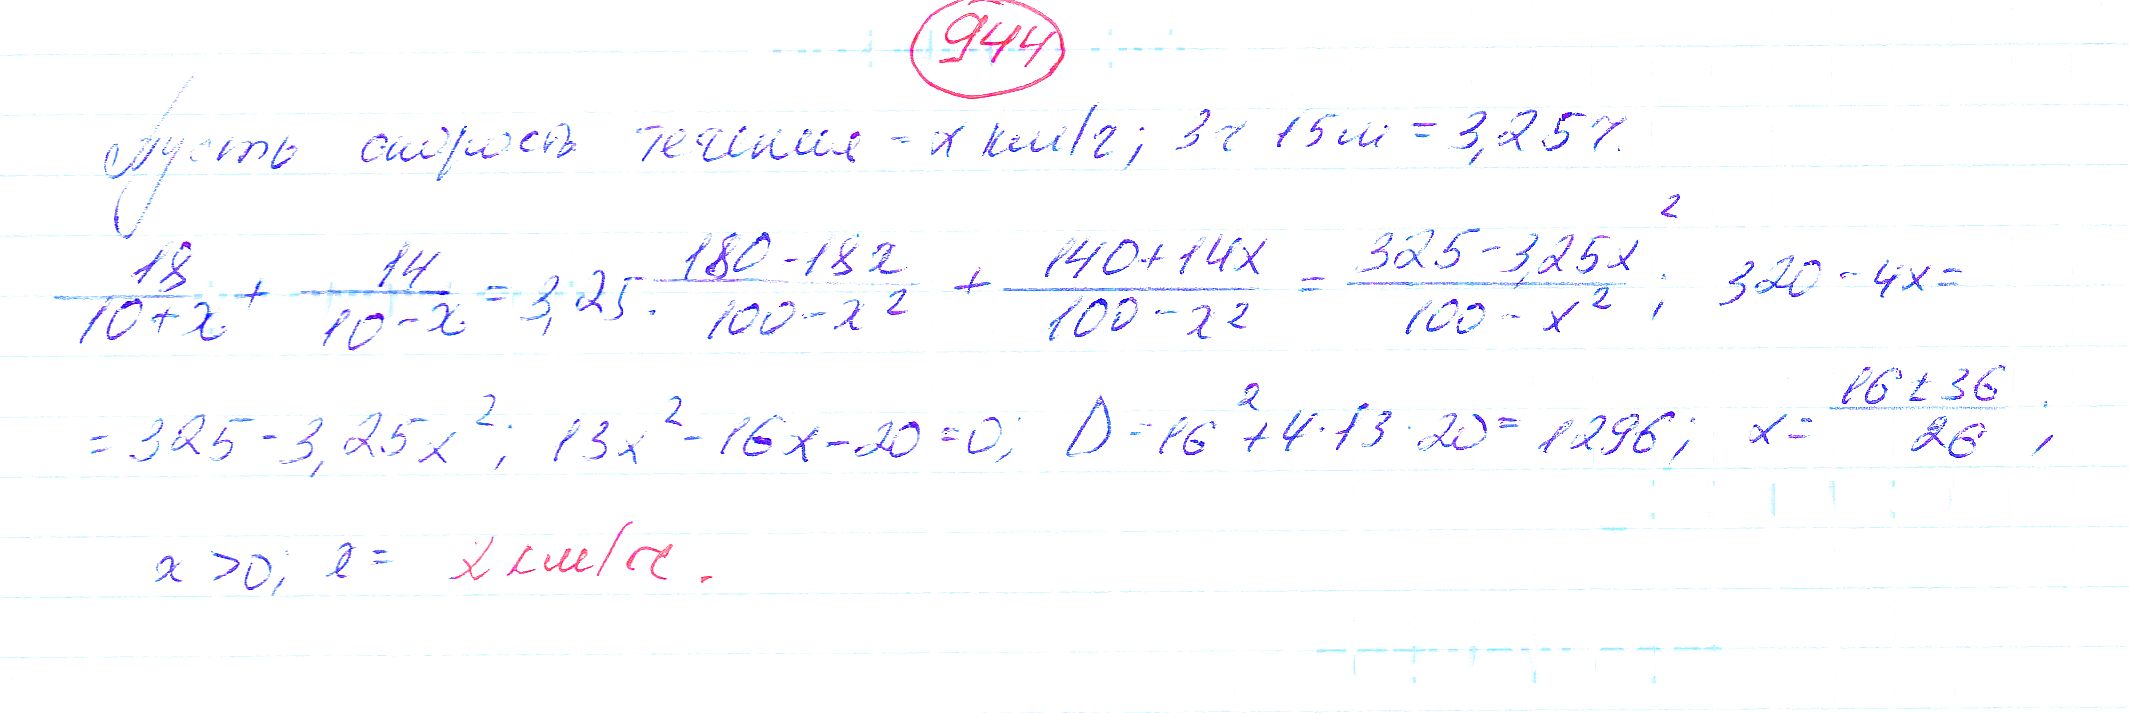 944
Пусть скорость течения - x км/ч; 3ч 15м = 3,25ч.
18/(10+x) + 14/(10-x) = 3,25. (180-18x)/(100-x²) + (140+14x)/(100-x²) = (325-3,25x²)/(100-x²); 320-4x=
=325-3,25x²; 13x²-16x-20=0; D=16²+4·13·20=1296; x=(16±36)/26;
x>0; x= 2 км/ч.